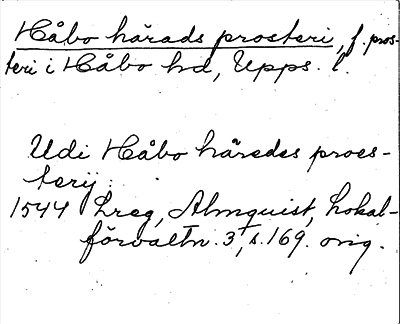 Håbo härads prosteri, f. pros-
teri i Håbo hd, Upps. l.
Udi Håbo häredes proes-
terij
1544 Lreg, Almquist, Lokal-
förvaltn. 3, s. 169. orig.